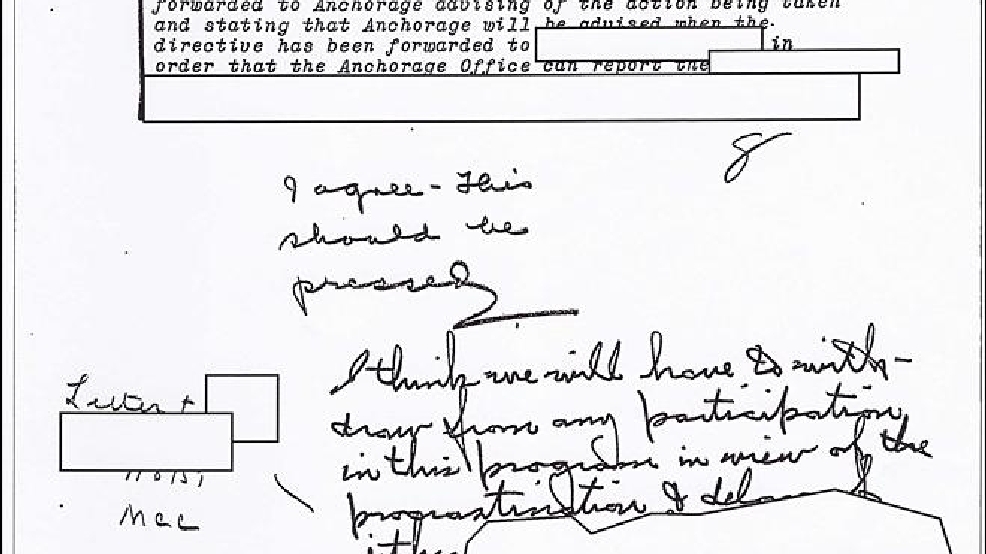 forwarded to Anchorage advising of the action being taken
and stating that Anchorage will be advised when the
directive has been forwarded to in
order that the Anchorage Office can report the
I agree - This
should be
pressed
I think we will have to with-
draw from any participation
in this program in view of the
procrastination &
Letter +